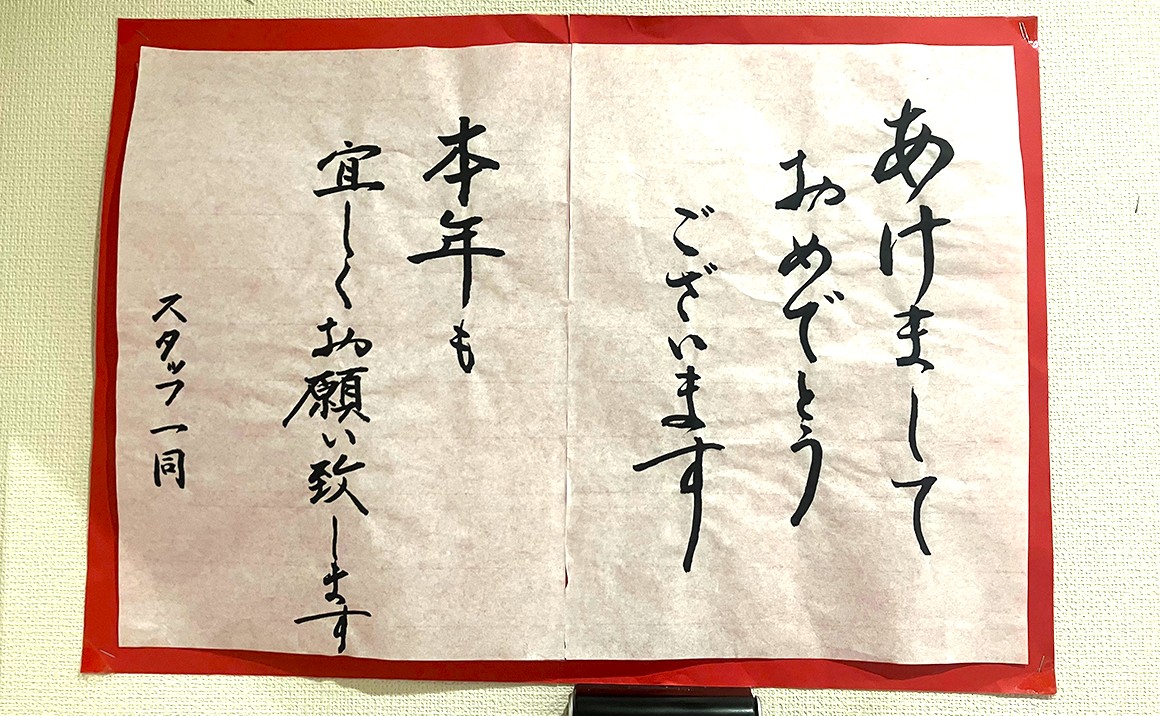 あけまして
おめでとう
ございます
本年も
宜しくお願い致します
スタッフ一同